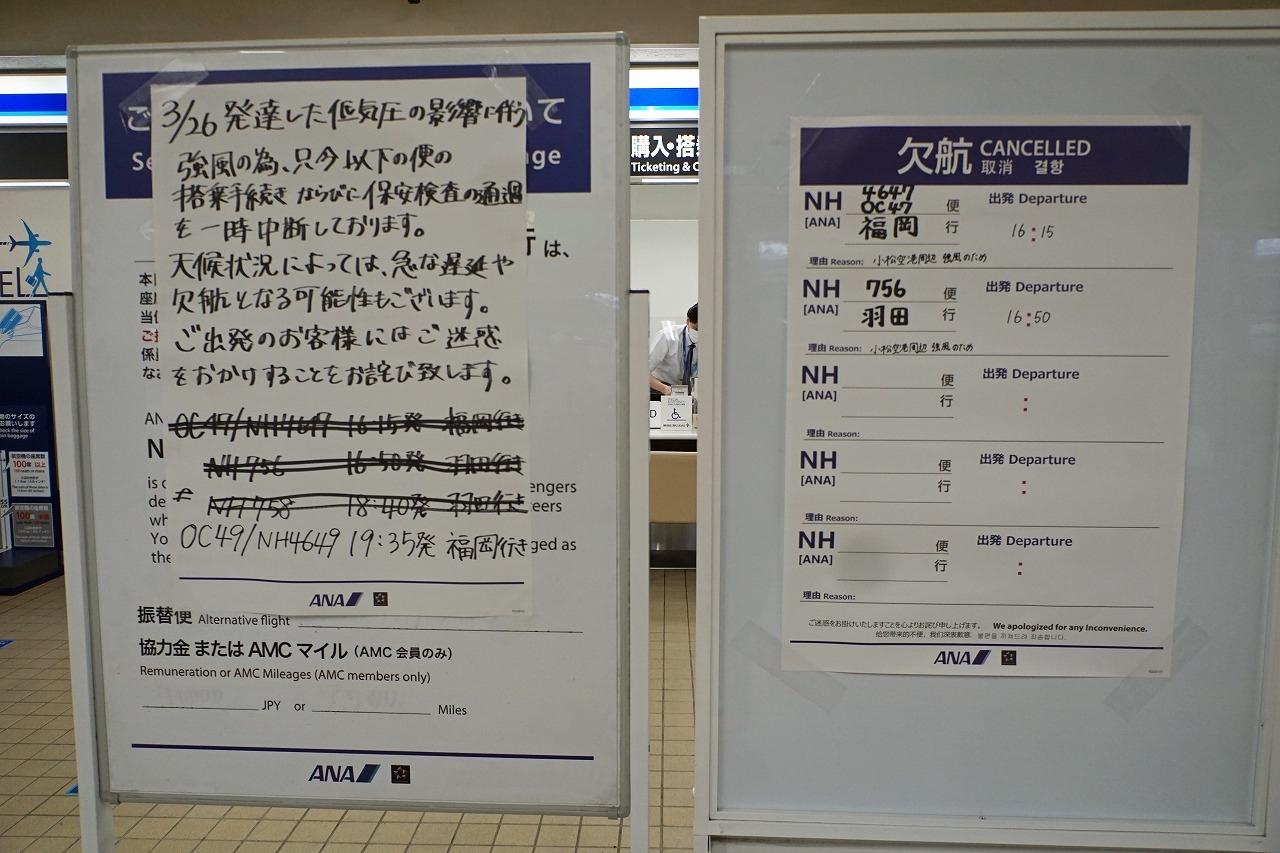 3/26 発達した低気圧の影響に伴う
強風の為、只今以下の便の
搭乗手続き ならびに 保安検査の通過
を一時中断しております。
天候状況によっては、急な遅延や
欠航となる可能性もございます。
ご出発のお客様にはご迷惑
をおかけすることをお詫び致します。
OC47/NH4647 16:15発 福岡行き
NH756 16:50発 羽田行き
NH758 18:40発 羽田行き
OC49/NH4649 19:35発 福岡行き
ANA
ご
いて
Se
nge
は、
本
座
当
ご
係
な
AN
N
is
de
wh
Yo
the
engers
eers
ged as
振替便 Alternative flight
協力金 または AMC マイル (AMC 会員のみ)
Remuneration or AMC Mileages (AMC members only)
JPY or Miles
ANA
購入・搭
Ticketing & C
欠航 CANCELLED
取消 결항
NH 4647
[ANA] OC47 便 出発 Departure
福岡 行 16:15
理由 Reason: 小松空港周辺 強風のため
NH 756 便 出発 Departure
[ANA] 羽田 行 16:50
理由 Reason: 小松空港周辺 強風のため
NH 便 出発 Departure
[ANA] 行 :
理由 Reason:
NH 便 出発 Departure
[ANA] 行 :
理由 Reason:
NH 便 出発 Departure
[ANA] 行 :
理由 Reason:
ご迷惑をお掛けいたしますことを心よりお詫び申し上げます。 We apologized for any Inconvenience.
给您带来的不便，我们深表歉意. 불편을 끼쳐드려 죄송합니다.
ANA
EL
100席 以上